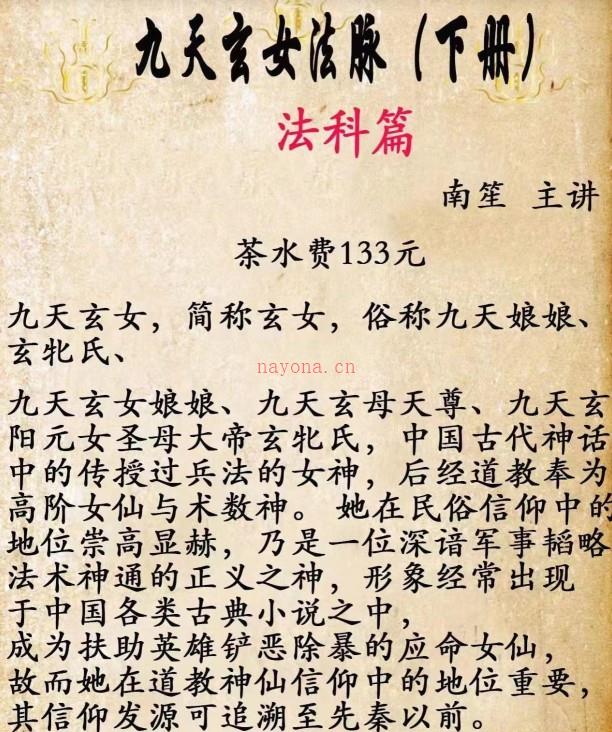 九天玄女法脉（下册）
法科篇
南笙 主讲
茶水费133元
九天玄女，简称玄女，俗称九天娘娘、
玄牝氏、
nayona.cn
九天玄女娘娘、九天玄母天尊、九天玄
阳元女圣母大帝玄牝氏，中国古代神话
中的传授过兵法的女神，后经道教奉为
高阶女仙与术数神。她在民俗信仰中的
地位崇高显赫，乃是一位深谙军事韬略
法术神通的正义之神，形象经常出现
于中国各类古典小说之中，
成为扶助英雄铲恶除暴的应命女仙，
故而她在道教神仙信仰中的地位重要，
其信仰发源可追溯至先秦以前。